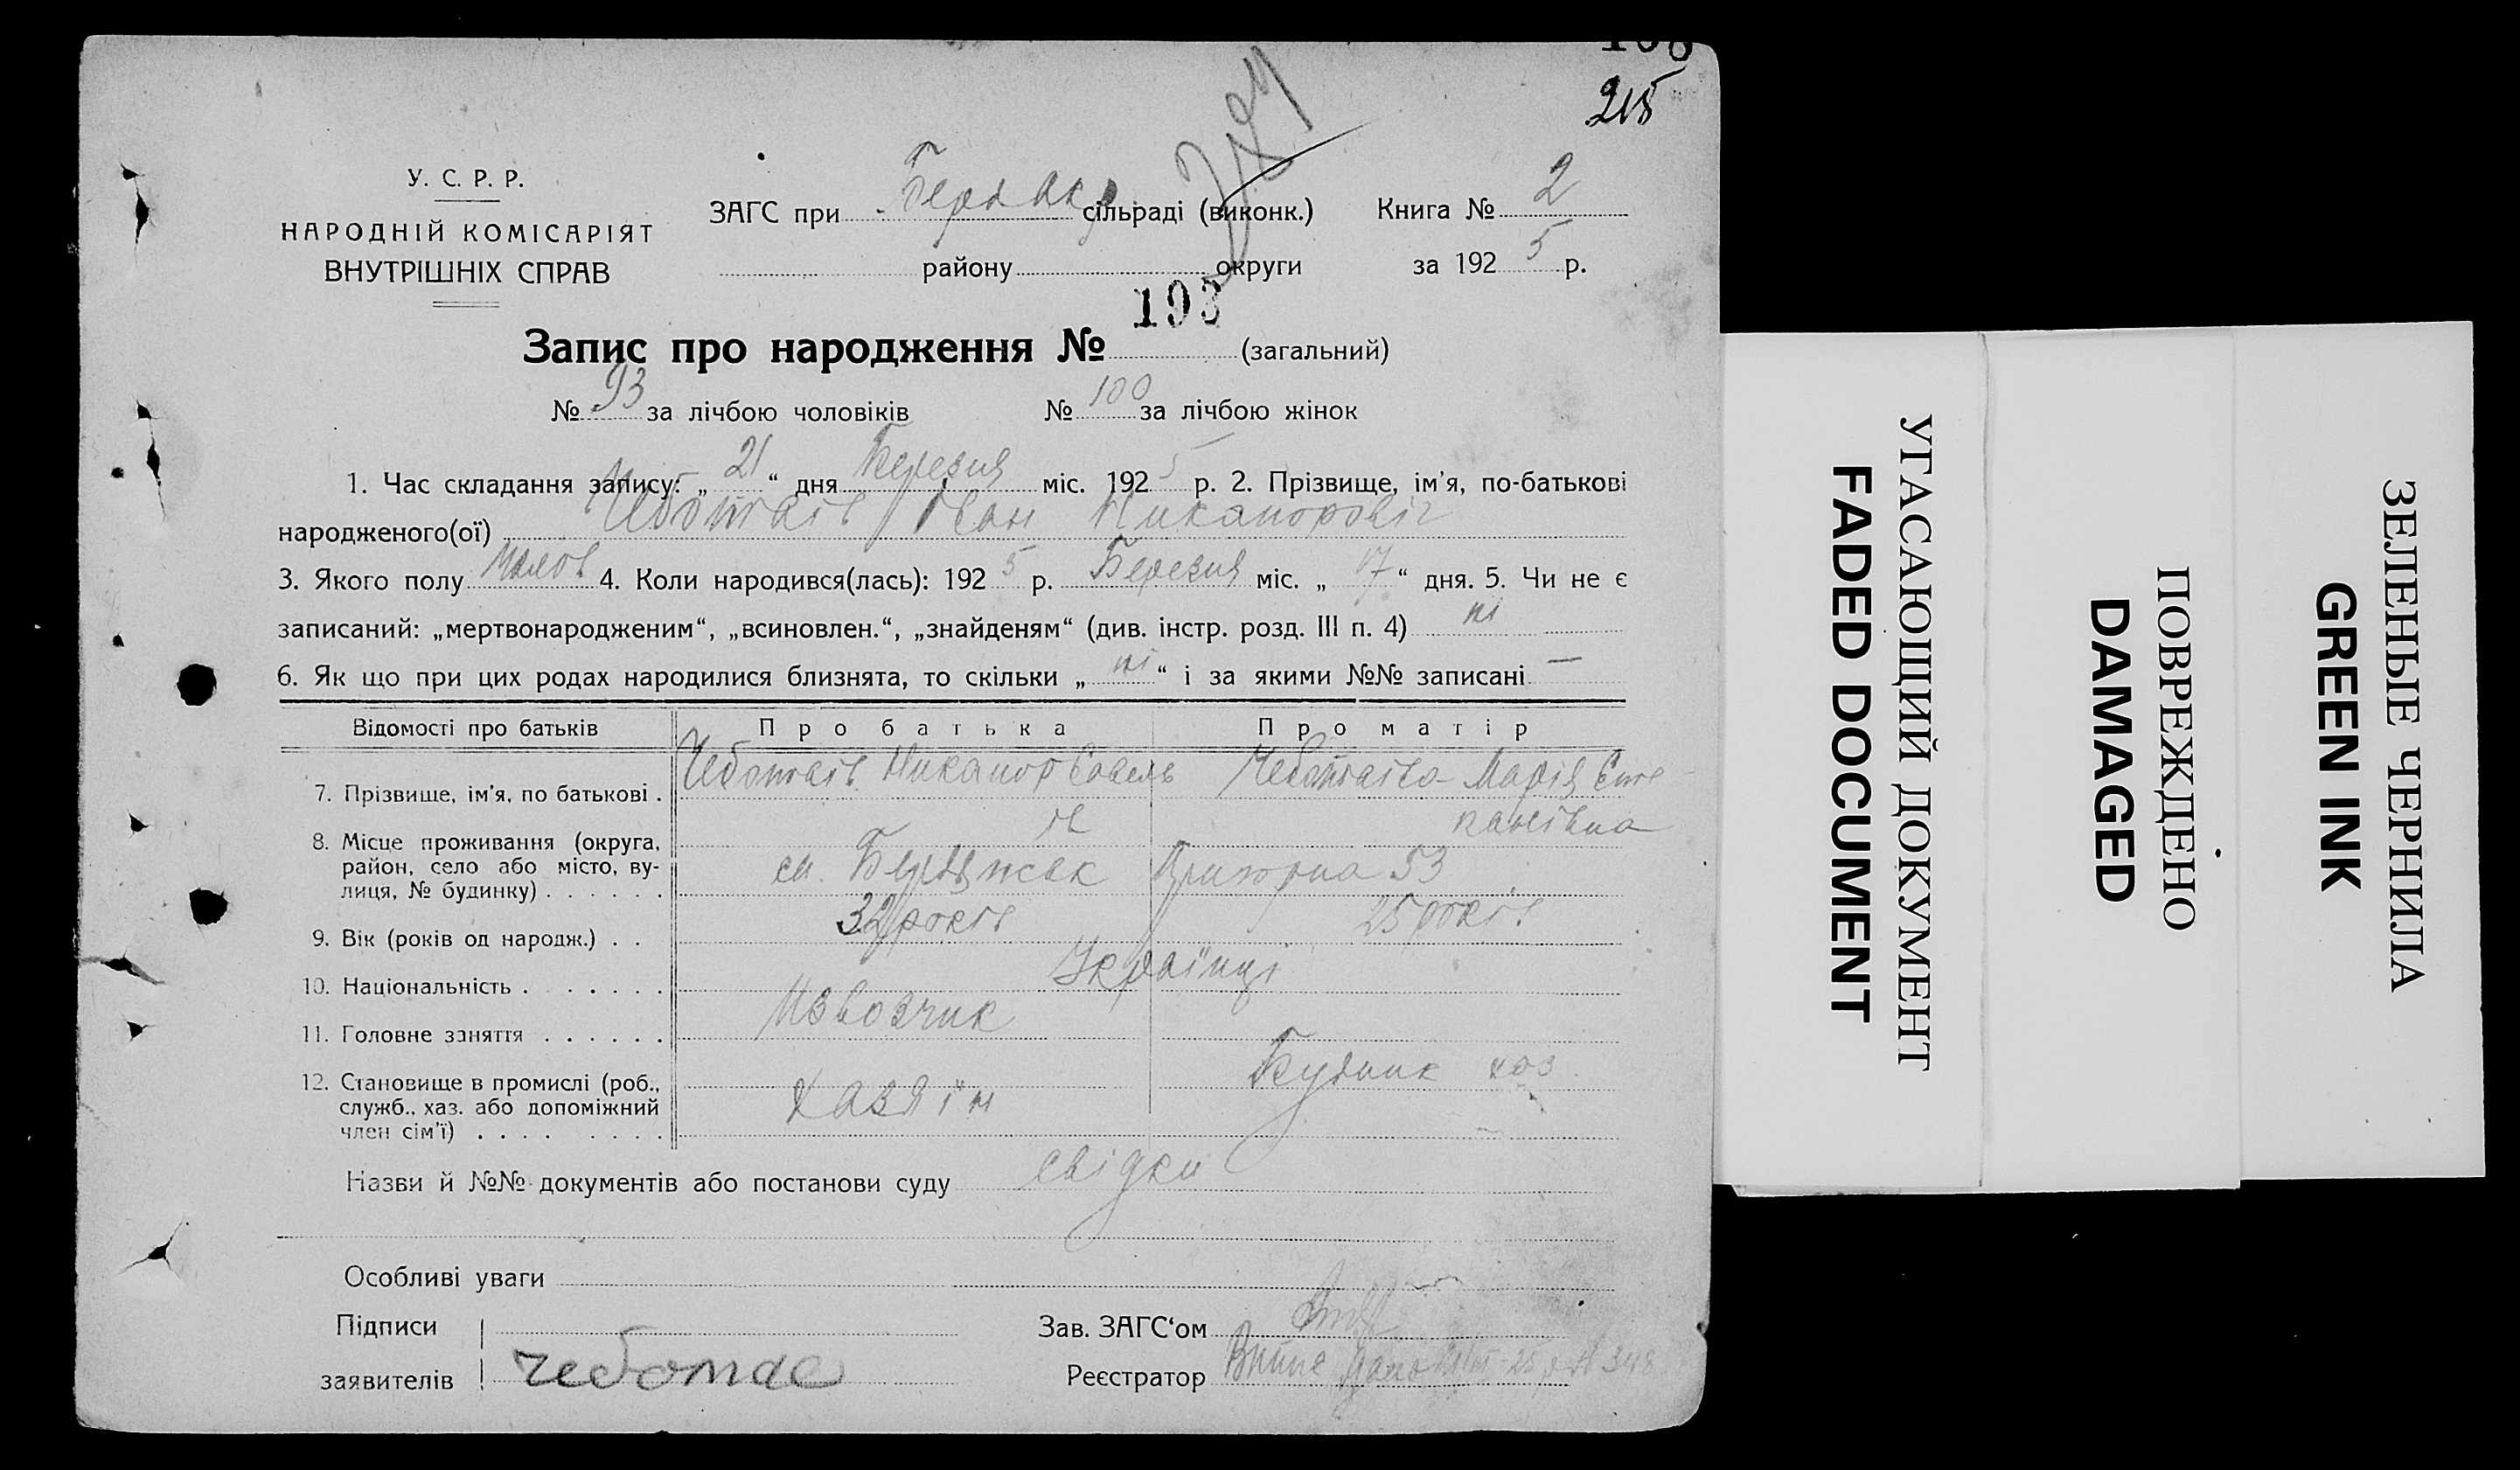 215
У. С. Р. Р.
НАРОДНІЙ КОМІСАРІЯТ
ВНУТРІШНІХ СПРАВ
ЗАГС при сільраді (виконк.) Книга № 2
району округи за 192 5 р.
193
Запис про народження № (загальний)
№ 93 за лічбою чоловіків № 100 за лічбою жінок
1. Час складання запису: „ 21 “ дня Березня міс. 192 5 р. 2. Прізвище, ім’я, по-батькові
народженого(ої) Чеботаїв Іван Никаноровіч
3. Якого полу 4. Коли народився(лась): 192 5 р. Березня міс. „ 17 “ дня. 5. Чи не є
записаний: „мертвонародженим“, „всиновлен.“, „знайденям“ (див. інстр. розд. III п. 4) ні
6. Як що при цих родах народилися близнята, то скільки „ ні “ і за якими №№ записані —
Відомості про батьків Про батька Про матір
7. Прізвище, ім’я, по батькові . Чеботаїв Никанор Савель Чеботаїва Марія Сте
їв панівна
8. Місце проживання (округа,
район, село або місто, ву-
лиця, № будинку) . . . . . . 53
9. Вік (років од народж.) . . 32 років 25 років
10. Національність . . . . . . . Українці
11. Головне заняття . . . . . . Извозчик
12. Становище в промислі (роб.,
служб., хаз. або допоміжний
член сім’ї) . . . . . . . . Хазяїн
Назви й №№ документів або постанови суду свідки
Особливі уваги
Підписи
заявителів чеботае
Зав. ЗАГС‘ом
Реєстратор
УГАСАЮЩИЙ ДОКУМЕНТ
FADED DOCUMENT
ПОВРЕЖДЕНО
DAMAGED
ЗЕЛЕНЫЕ ЧЕРНИЛА
GREEN INK